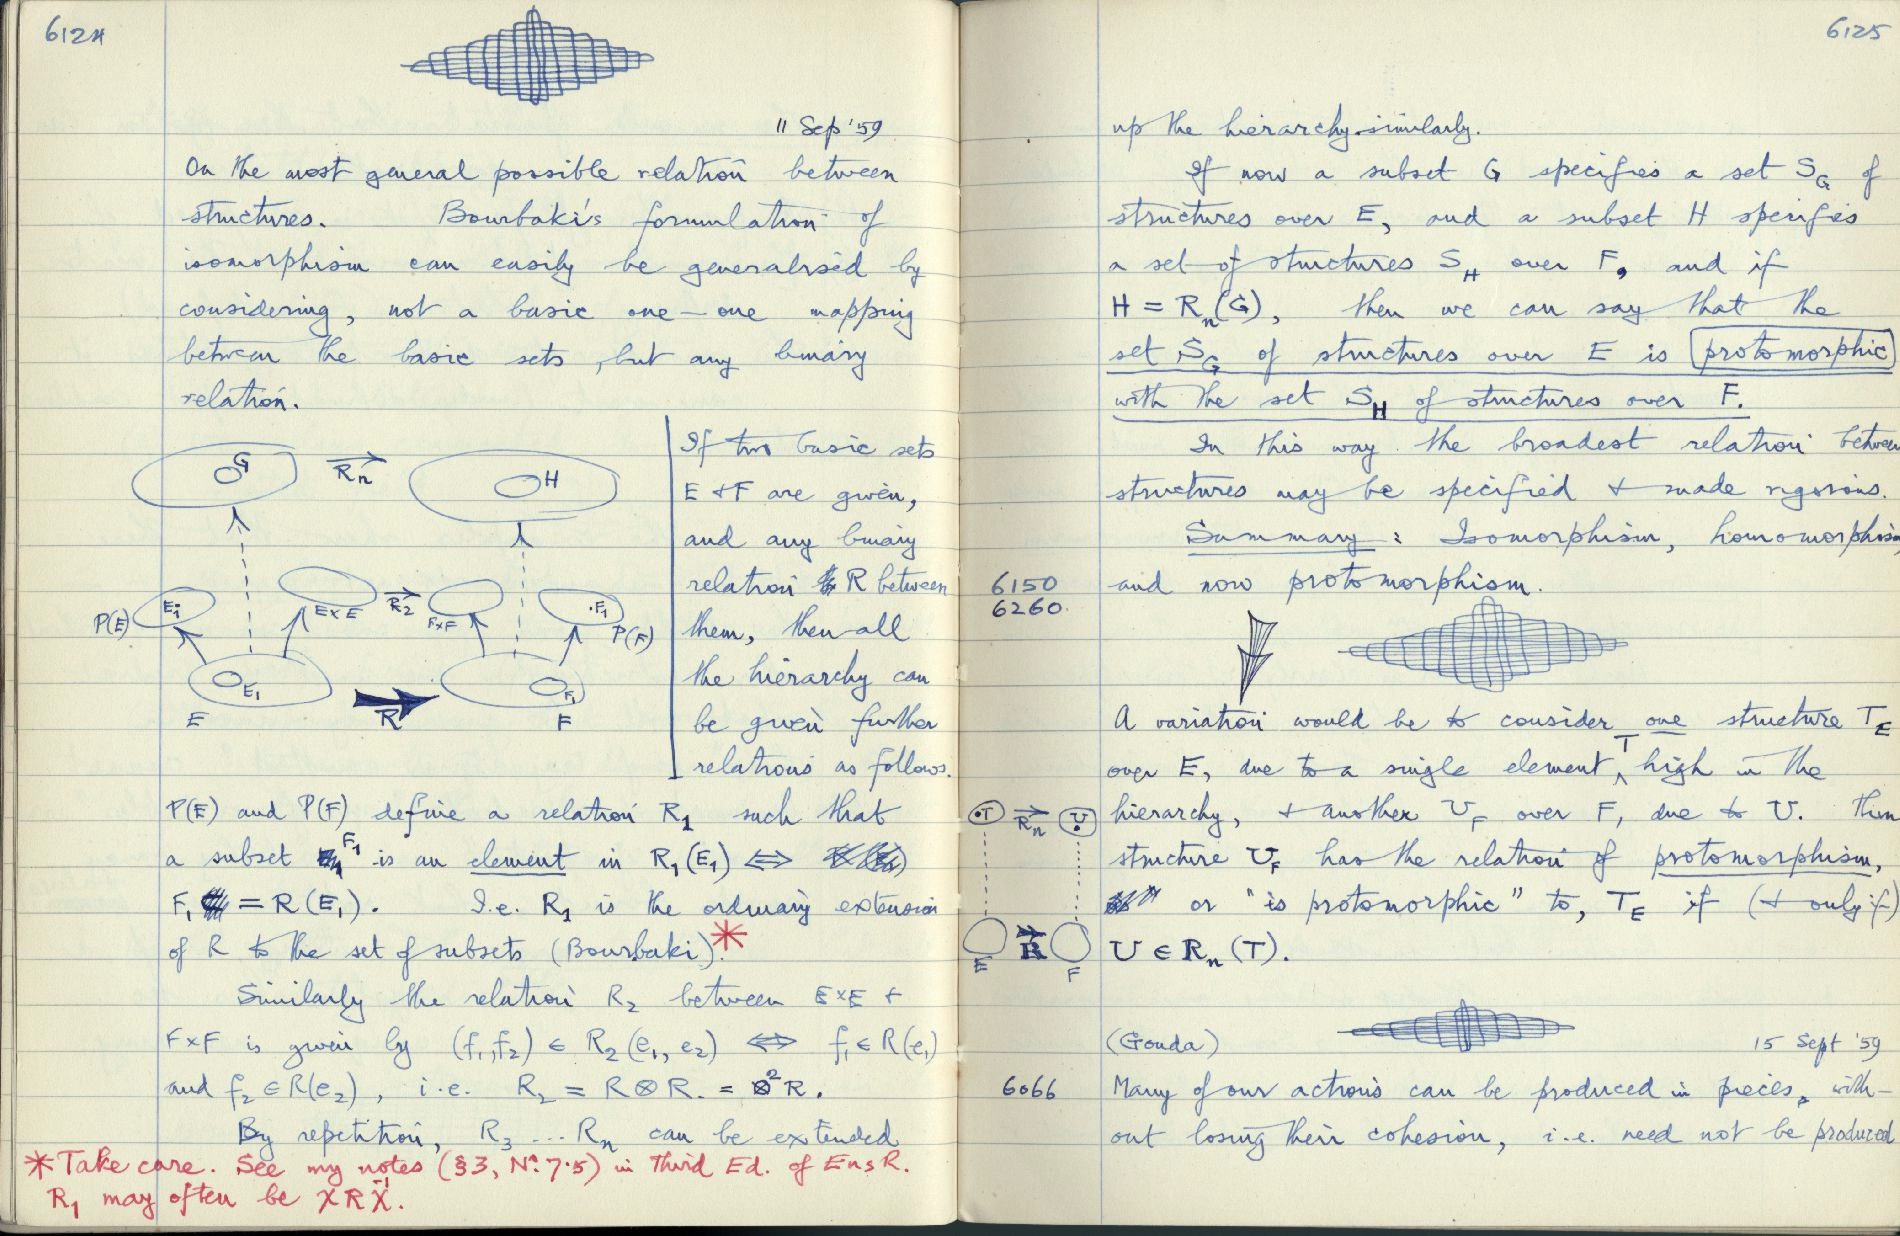 6124
11 Sep '59
On the most general possible relation between
structures. Bourbaki's formulation of
isomorphism can easily be generalised by
considering, not a basic one-one mapping
between the basic sets, but any binary
relation.
G
Rn
H
If two basic sets
E & F are given,
and any binary
relation R between
them, then all
the hierarchy can
be given further
relations as follows.
P(E)
E1
E×E
R2
F×F
F1
P(F)
E1
F1
E
R
F
P(E) and P(F) define a relation R1 such that
a subset F1 is an element in R1(E1) ⟺
F1 = R(E1). I.e. R1 is the ordinary extension
of R to the set of subsets (Bourbaki).*
Similarly the relation R2 between E×E &
F×F is given by (f1,f2) ∈ R2(e1, e2) ⟺ f1 ∈ R(e1)
and f2 ∈ R(e2), i.e. R2 = R⊗R = ⊗²R.
By repetition, R3 ... Rn can be extended
*Take care. See my notes (§3, No. 7.5) in Third Ed. of Ens R.
R1 may often be XRX⁻¹.
6125
up the hierarchy similarly.
If now a subset G specifies a set SG of
structures over E, and a subset H specifies
a set of structures SH over F, and if
H = Rn(G), then we can say that the
set SG of structures over E is protomorphic
with the set SH of structures over F.
In this way the broadest relation between
structures may be specified & made rigorous.
Summary: Isomorphism, homomorphism
6150
and now protomorphism.
6260.
A variation would be to consider one structure TE
over E, due to a single element T high in the
T
Rn
U
hierarchy, & another UF over F, due to U. Then
structure UF has the relation of protomorphism,
or "is protomorphic" to, TE if (& only if)
E
R
F
U ∈ Rn(T).
(Gouda)
15 Sept '59
6066
Many of our actions can be produced in pieces, with-
out losing their cohesion, i.e. need not be produced